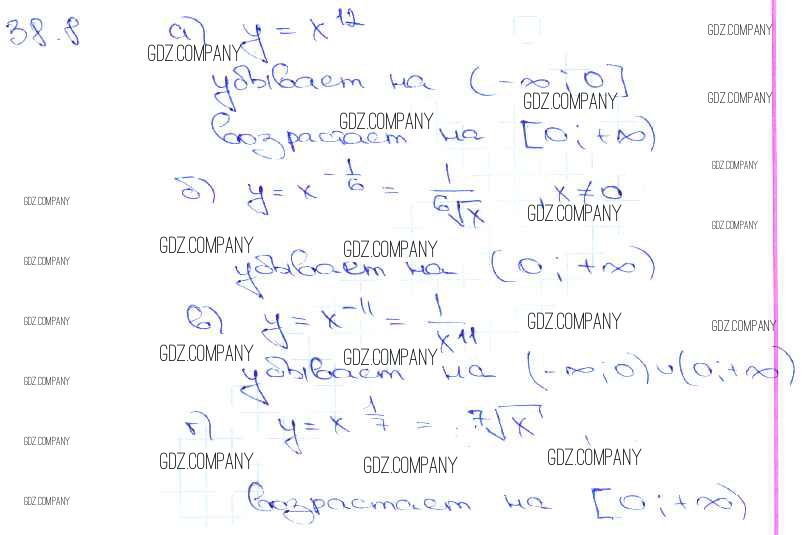 38.8 а) y = x^12
GDZ.COMPANY GDZ.COMPANY
убывает на (-∞; 0]
GDZ.COMPANY GDZ.COMPANY
GDZ.COMPANY
возрастает на [0; +∞)
GDZ.COMPANY
б) y = x^(-1/6) = 1/⁶√x , x ≠ 0
GDZ.COMPANY GDZ.COMPANY GDZ.COMPANY
GDZ.COMPANY GDZ.COMPANY GDZ.COMPANY
убывает на (0; +∞)
в) y = x^(-11) = 1/x^11
GDZ.COMPANY GDZ.COMPANY GDZ.COMPANY
GDZ.COMPANY GDZ.COMPANY
убывает на (-∞; 0) ∪ (0; +∞)
GDZ.COMPANY
г) y = x^(1/7) = ⁷√x
GDZ.COMPANY
GDZ.COMPANY GDZ.COMPANY GDZ.COMPANY
GDZ.COMPANY
возрастает на [0; +∞)